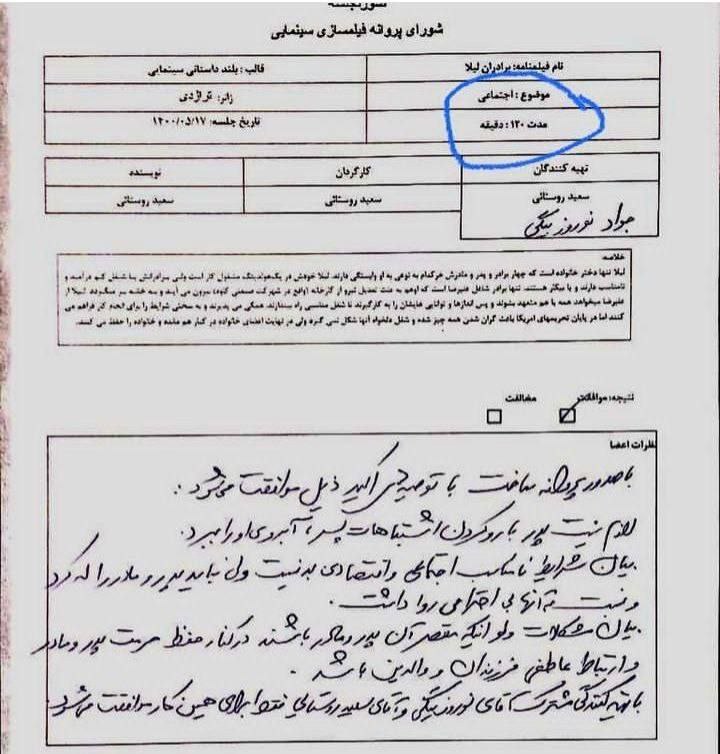 صورتجلسه
شورای پروانه فیلمسازی سینمایی
نام فیلمنامه: برادران لیلا
قالب: بلند داستانی سینمایی
موضوع: اجتماعی
ژانر: تراژدی
مدت ۱۲۰: دقیقه
تاریخ جلسه: ۱۴۰۰/۰۵/۱۷
تهیه کنندگان
کارگردان
نویسنده
سعید روستائی
سعید روستائی
سعید روستائی
جواد نوروزبیگی
خلاصه
لیلا تنها دختر خانواده است که چهار برادر و پدر و مادرش هرکدام به نوعی به او وابستگی دارند. لیلا خودش در یک هولدینگ مشغول کار است ولی برادرانش یا شغل کم درآمد و
نامناسب دارند و یا بیکار هستند. تنها برادر شاغل علیرضا است که او هم به علت تعدیل نیرو از کارخانه (واقع در شرکت صنعتی کاوه) بیرون می آیند و به خانه بر میگردد. لیلا از
علیرضا میخواهد همه با هم متعهد بشوند و پس اندازها و توانایی هایشان را به کارگیرند تا شغل مناسبی راه بیندازند. همگی می پذیرند و به سختی شرایط را برای انجام کار فراهم می
کنند اما در پایان تحریمهای امریکا باعث گران شدن همه چیز شده و شغل دلخواه آنها شکل نمی گیرد ولی در نهایت اعضای خانواده در کنار هم مانده و خانواده را حفظ می کنند.
نتیجه: موافقت
مخالفت
نظرات اعضا
با صدور پروانه ساخت با توصیه های اکید ذیل موافقت می شود:
لازم نیست پدر با رو کردن اشتباهات پسر، آبروی او را ببرد.
.بیان شرایط نامناسب اجتماعی و اقتصادی بد نیست ولی نباید پدر و مادر را له کرد
و نسبت به آنها بی احترامی روا داشت.
.بیان مشکلات ولو اینکه مقصر آن پدر و مادر باشند در کنار حفظ حرمت پدر و مادر
و ارتباط عاطفی فرزندان و والدین باشد.
با تهیه کنندگی مشترک آقای نوروزبیگی و آقای سعید روستائی فقط برای همین کار موافقت می شود.